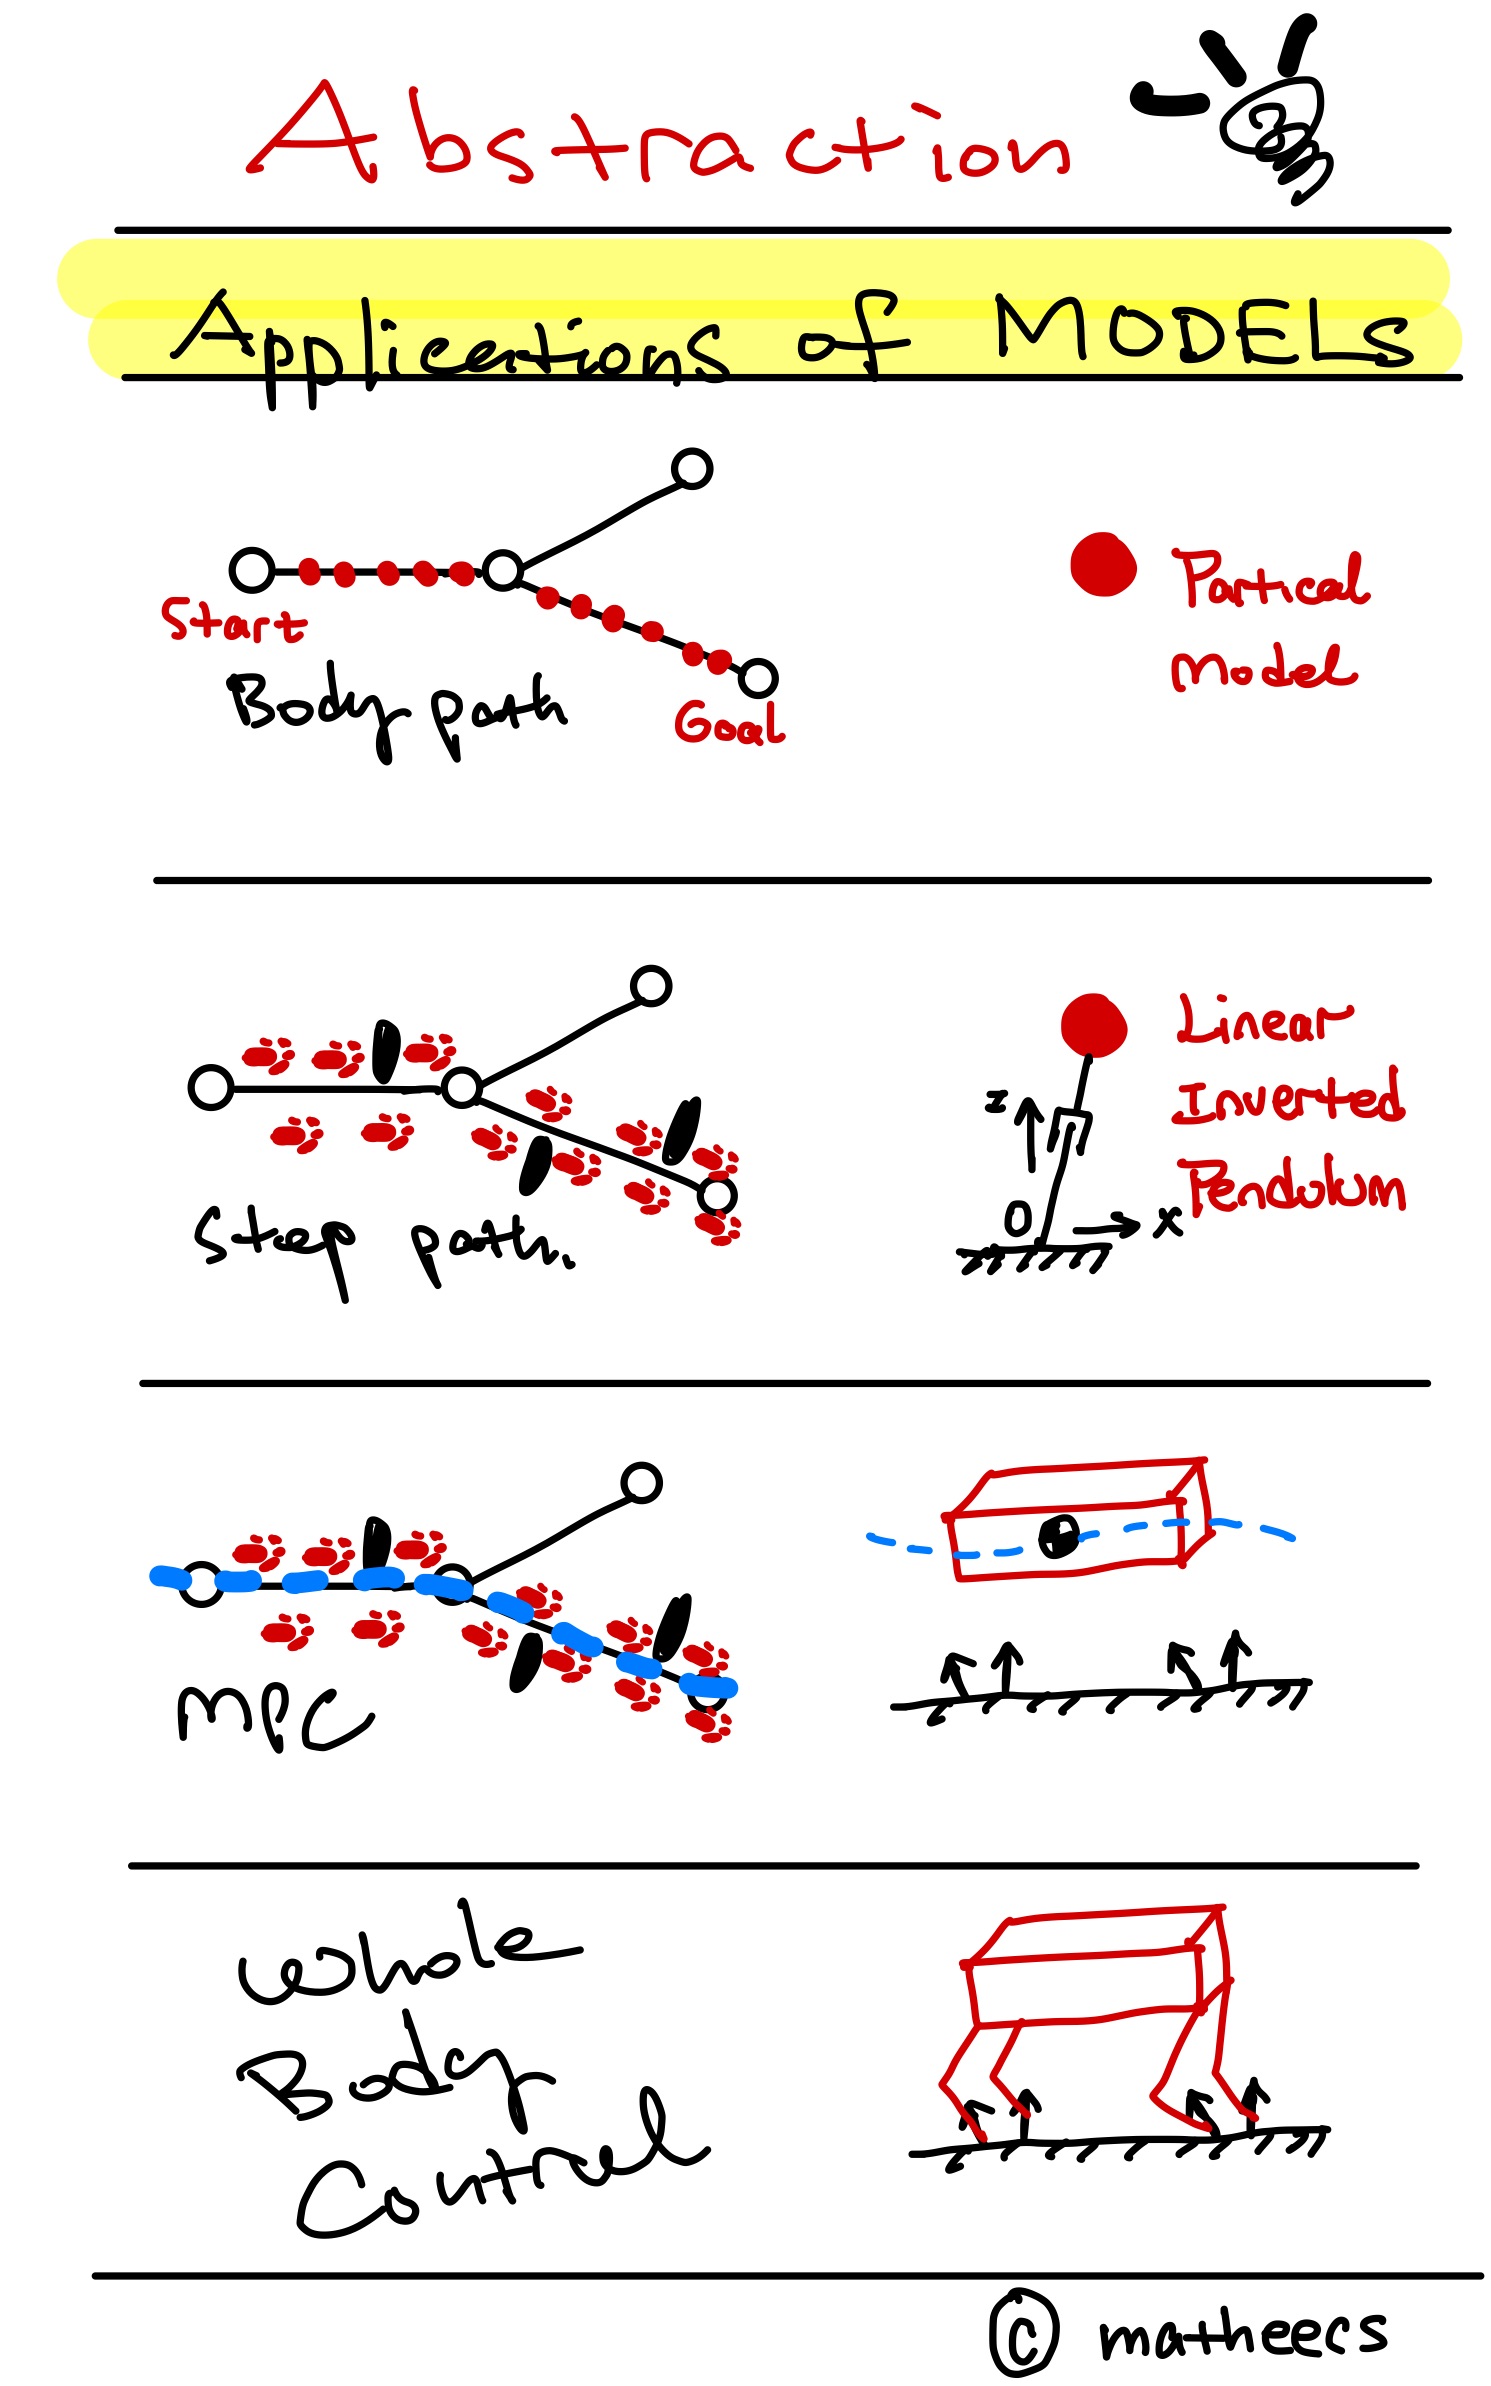 Abstraction
Applications of MODELS
Start
Body path
Goal
Partical
Model
Step path
Linear
Inverted
Pendulum
z
O
x
MPC
Whole
Body
Control
© matheecs